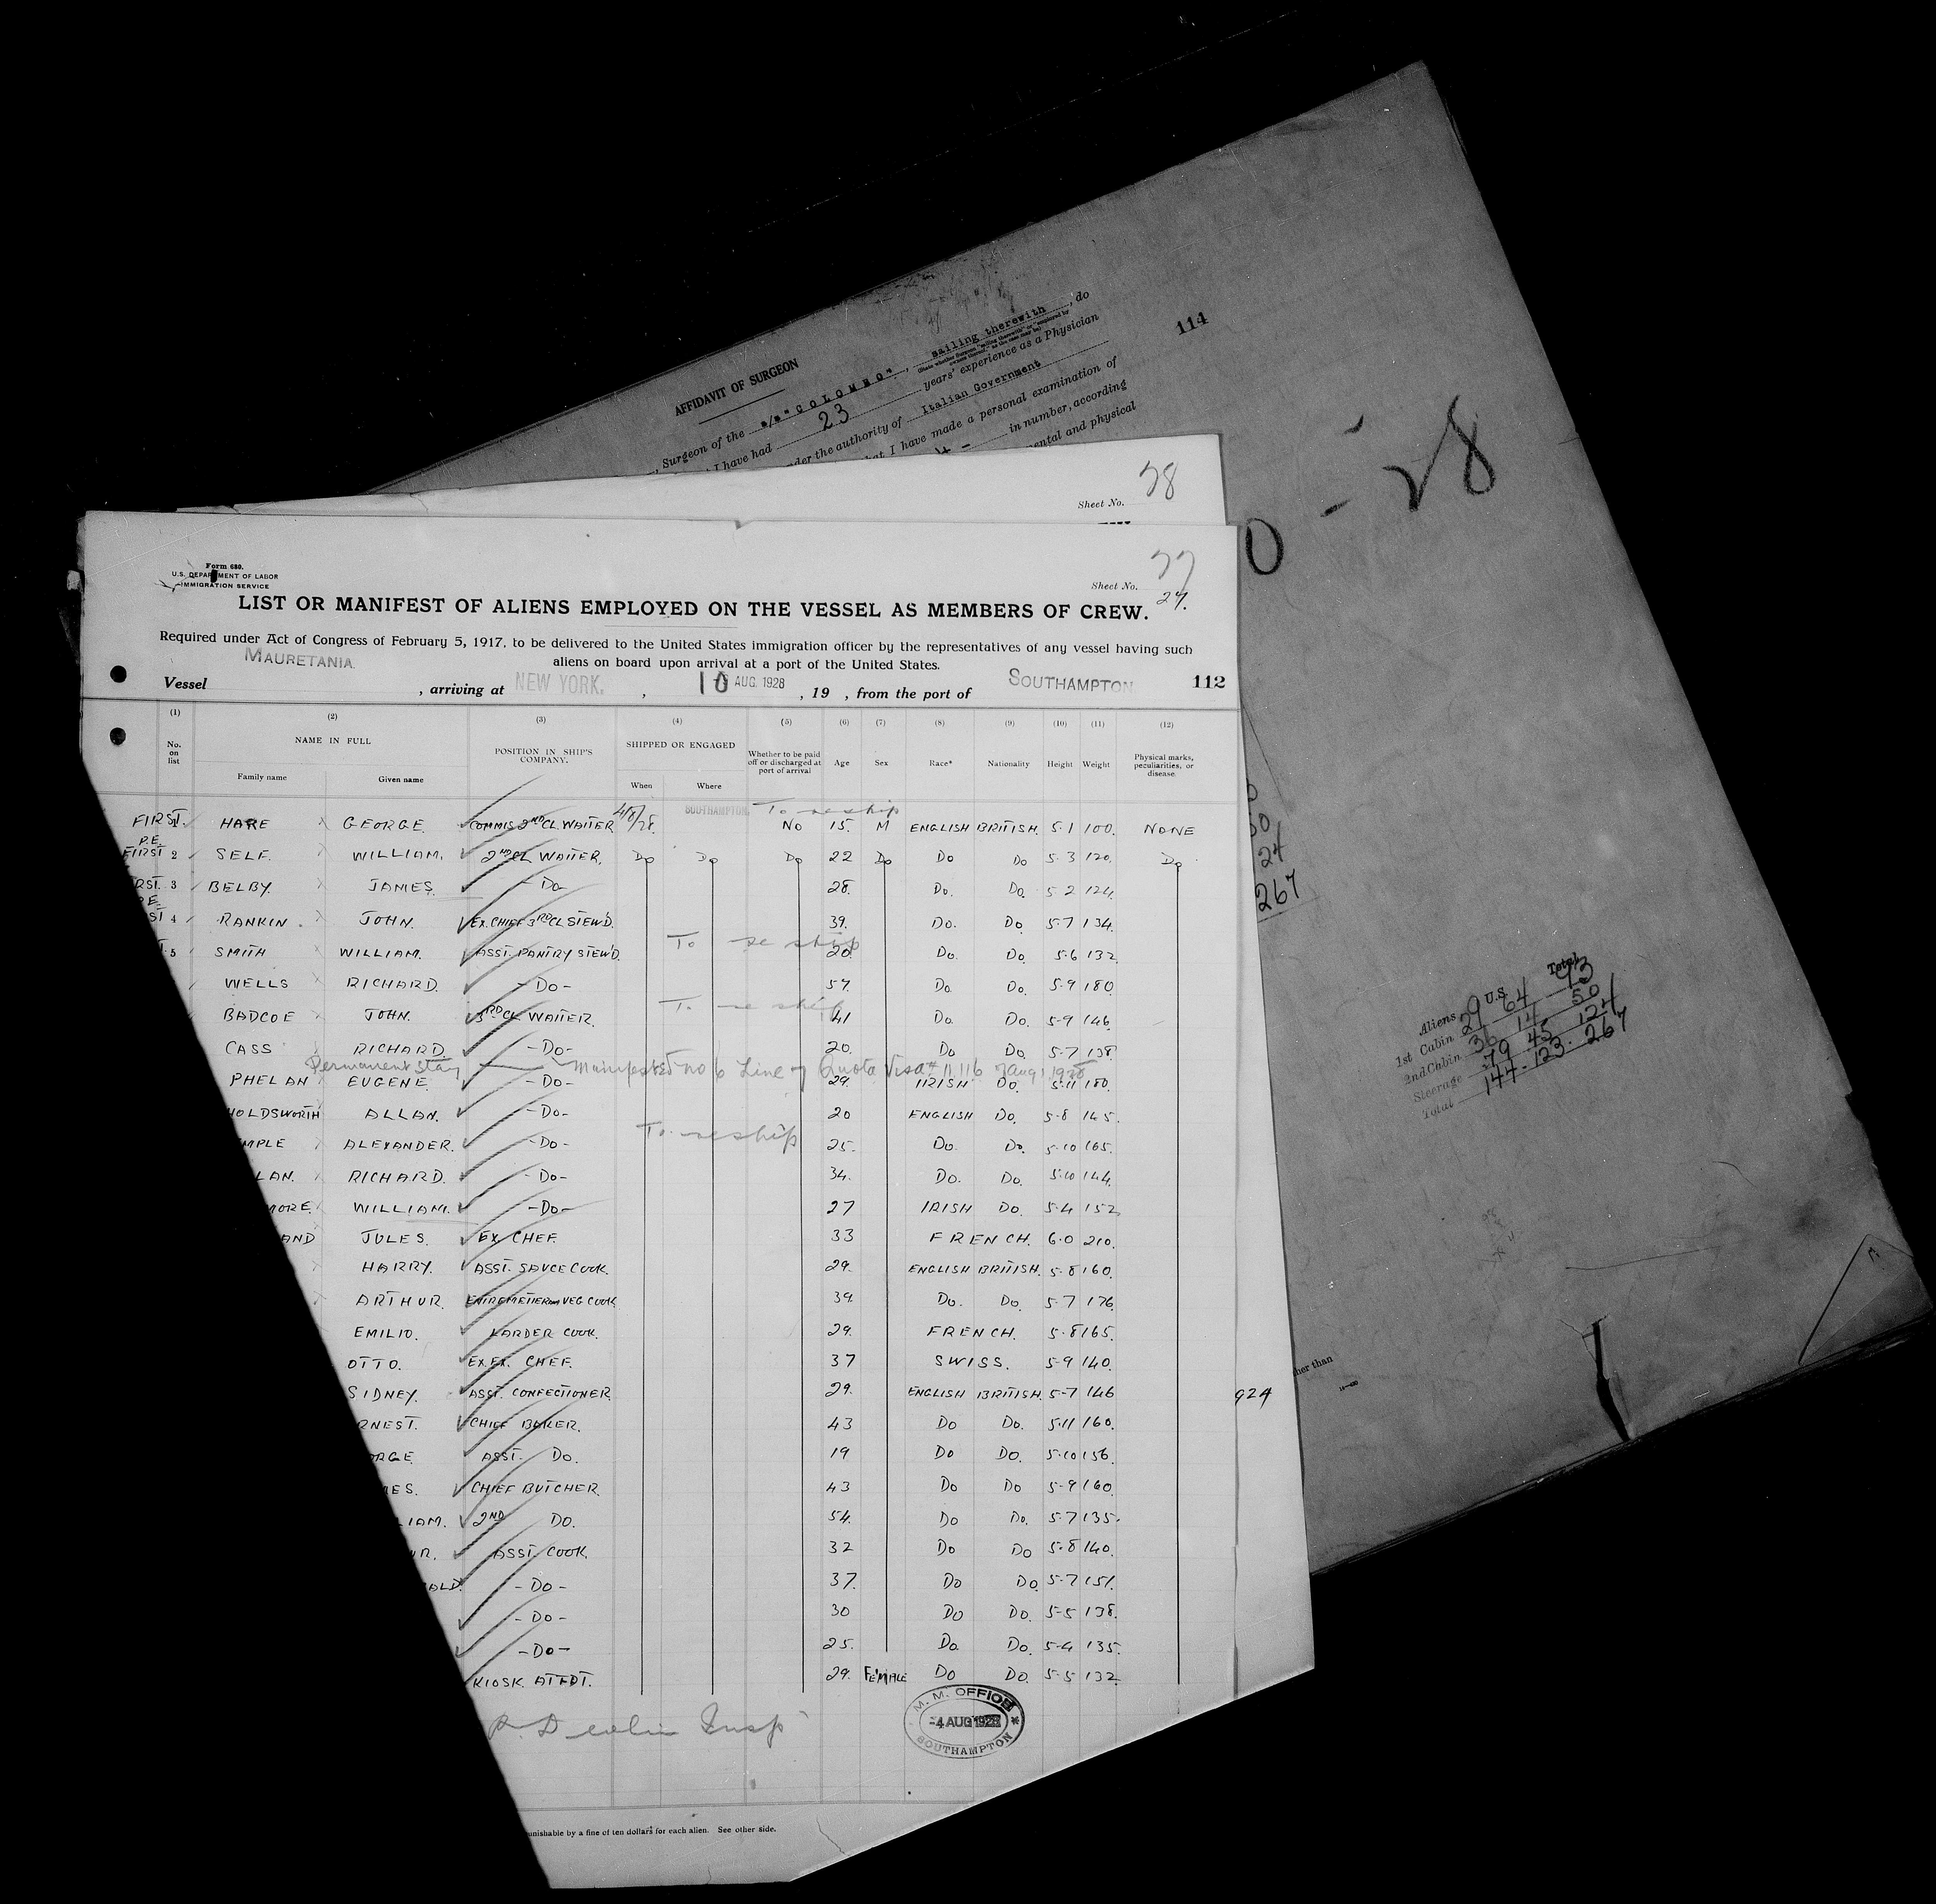 AFFIDAVIT OF SURGEON
, Surgeon of the s/s "COLOMBO", sailing therewith, do
I have had 23 years' experience as a Physician
der the authority of Italian Government
at I have made a personal examination of
in number, according
ental and physical
114
0 - 28
Sheet No. 28
Form 680.
U.S. DEPARTMENT OF LABOR
IMMIGRATION SERVICE
Sheet No. 27
27.
LIST OR MANIFEST OF ALIENS EMPLOYED ON THE VESSEL AS MEMBERS OF CREW.
Required under Act of Congress of February 5, 1917, to be delivered to the United States immigration officer by the representatives of any vessel having such
aliens on board upon arrival at a port of the United States.
Vessel MAURETANIA, arriving at NEW YORK, 10 AUG. 1928, 19 , from the port of SOUTHAMPTON 112
(1) (2) (3) (4) (5) (6) (7) (8) (9) (10) (11) (12)
No. on list NAME IN FULL POSITION IN SHIP'S COMPANY. SHIPPED OR ENGAGED Whether to be paid off or discharged at port of arrival Age Sex Race* Nationality Height Weight Physical marks, peculiarities, or disease.
Family name Given name When Where
To reship
FIRST. 1 HARE GEORGE. COMMIS 2ND CL WAITER 4/8/28. SOUTHAMPTON NO 15. M ENGLISH BRITISH. 5-1 100. NONE
P.E.
FIRST 2 SELF. WILLIAM. 2ND CL WAITER. Do Do Do 22 Do Do Do 5-3 120. Do
RST. 3 BELBY. JAMES. - Do 28. Do. Do. 5 2 124.
ST 4 RANKIN. JOHN. EX. CHIEF 3RD CL STEW'D. 39. Do. Do 5-7 134.
To reship
T. 5 SMITH WILLIAM. ASST. PANTRY STEW'D. 20. Do. Do. 5-6 132.
WELLS RICHARD. - Do - 57. Do. Do. 5-9 180.
To reship
BADCOE JOHN. 3RD CL WAITER. 41 Do. Do. 5-9 146.
CASS RICHARD. - Do - 20. Do Do. 5-7 138.
Permanent Stay Manifested no 6 Line 7 Quota Visa # 11116 Aug 1 1928
PHELAN EUGENE. - Do - 29. IRISH Do. 5-11 180.
HOLDSWORTH ALLAN. - Do - 20 ENGLISH Do. 5-8 145.
To reship
MPLE ALEXANDER. - Do - 25. Do. Do. 5-10 165.
LAN. RICHARD. - Do - 34. Do. Do. 5-10 144.
MORE. WILLIAM. - Do - 27 IRISH Do. 5-4 152
AND JULES. EX CHEF. 33 FRENCH. 6-0 210.
HARRY. ASST. SAUCE COOK. 29. ENGLISH BRITISH. 5-8 160.
ARTHUR. ENTREMETTIER VEG COOK. 39. Do. Do. 5-7 176.
EMILIO. LARDER COOK. 29. FRENCH. 5-8 165.
OTTO. EX. EX. CHEF. 37 SWISS. 5-9 140.
SIDNEY. ASST. CONFECTIONER. 29. ENGLISH BRITISH. 5-7 146
RNEST. CHIEF BAKER. 43 Do Do. 5-11 160.
ORGE. ASST. Do. 19 Do Do. 5-10 156.
MES. CHIEF BUTCHER. 43 Do Do 5-9 160.
LIAM. 2ND DO. 54. Do Do. 5-7 135.
UR. ASST. COOK. 32 Do Do 5-8 140.
ALD. - Do - 37. Do Do 5-7 151.
- Do - 30 Do Do. 5-5 138.
- Do - 25. Do. Do. 5-4 135.
KIOSK ATTDT. 29. FEMALE Do Do. 5-5 132.
Insp
M. M. OFFICE
-4 AUG 1928
SOUTHAMPTON
unishable by a fine of ten dollars for each alien. See other side.
24
267
924
her than
Aliens U.S. Total
1st Cabin 29 64 93
2nd Cabin 36 14 50
Steerage 79 45 124
Total 144 - 123 - 267